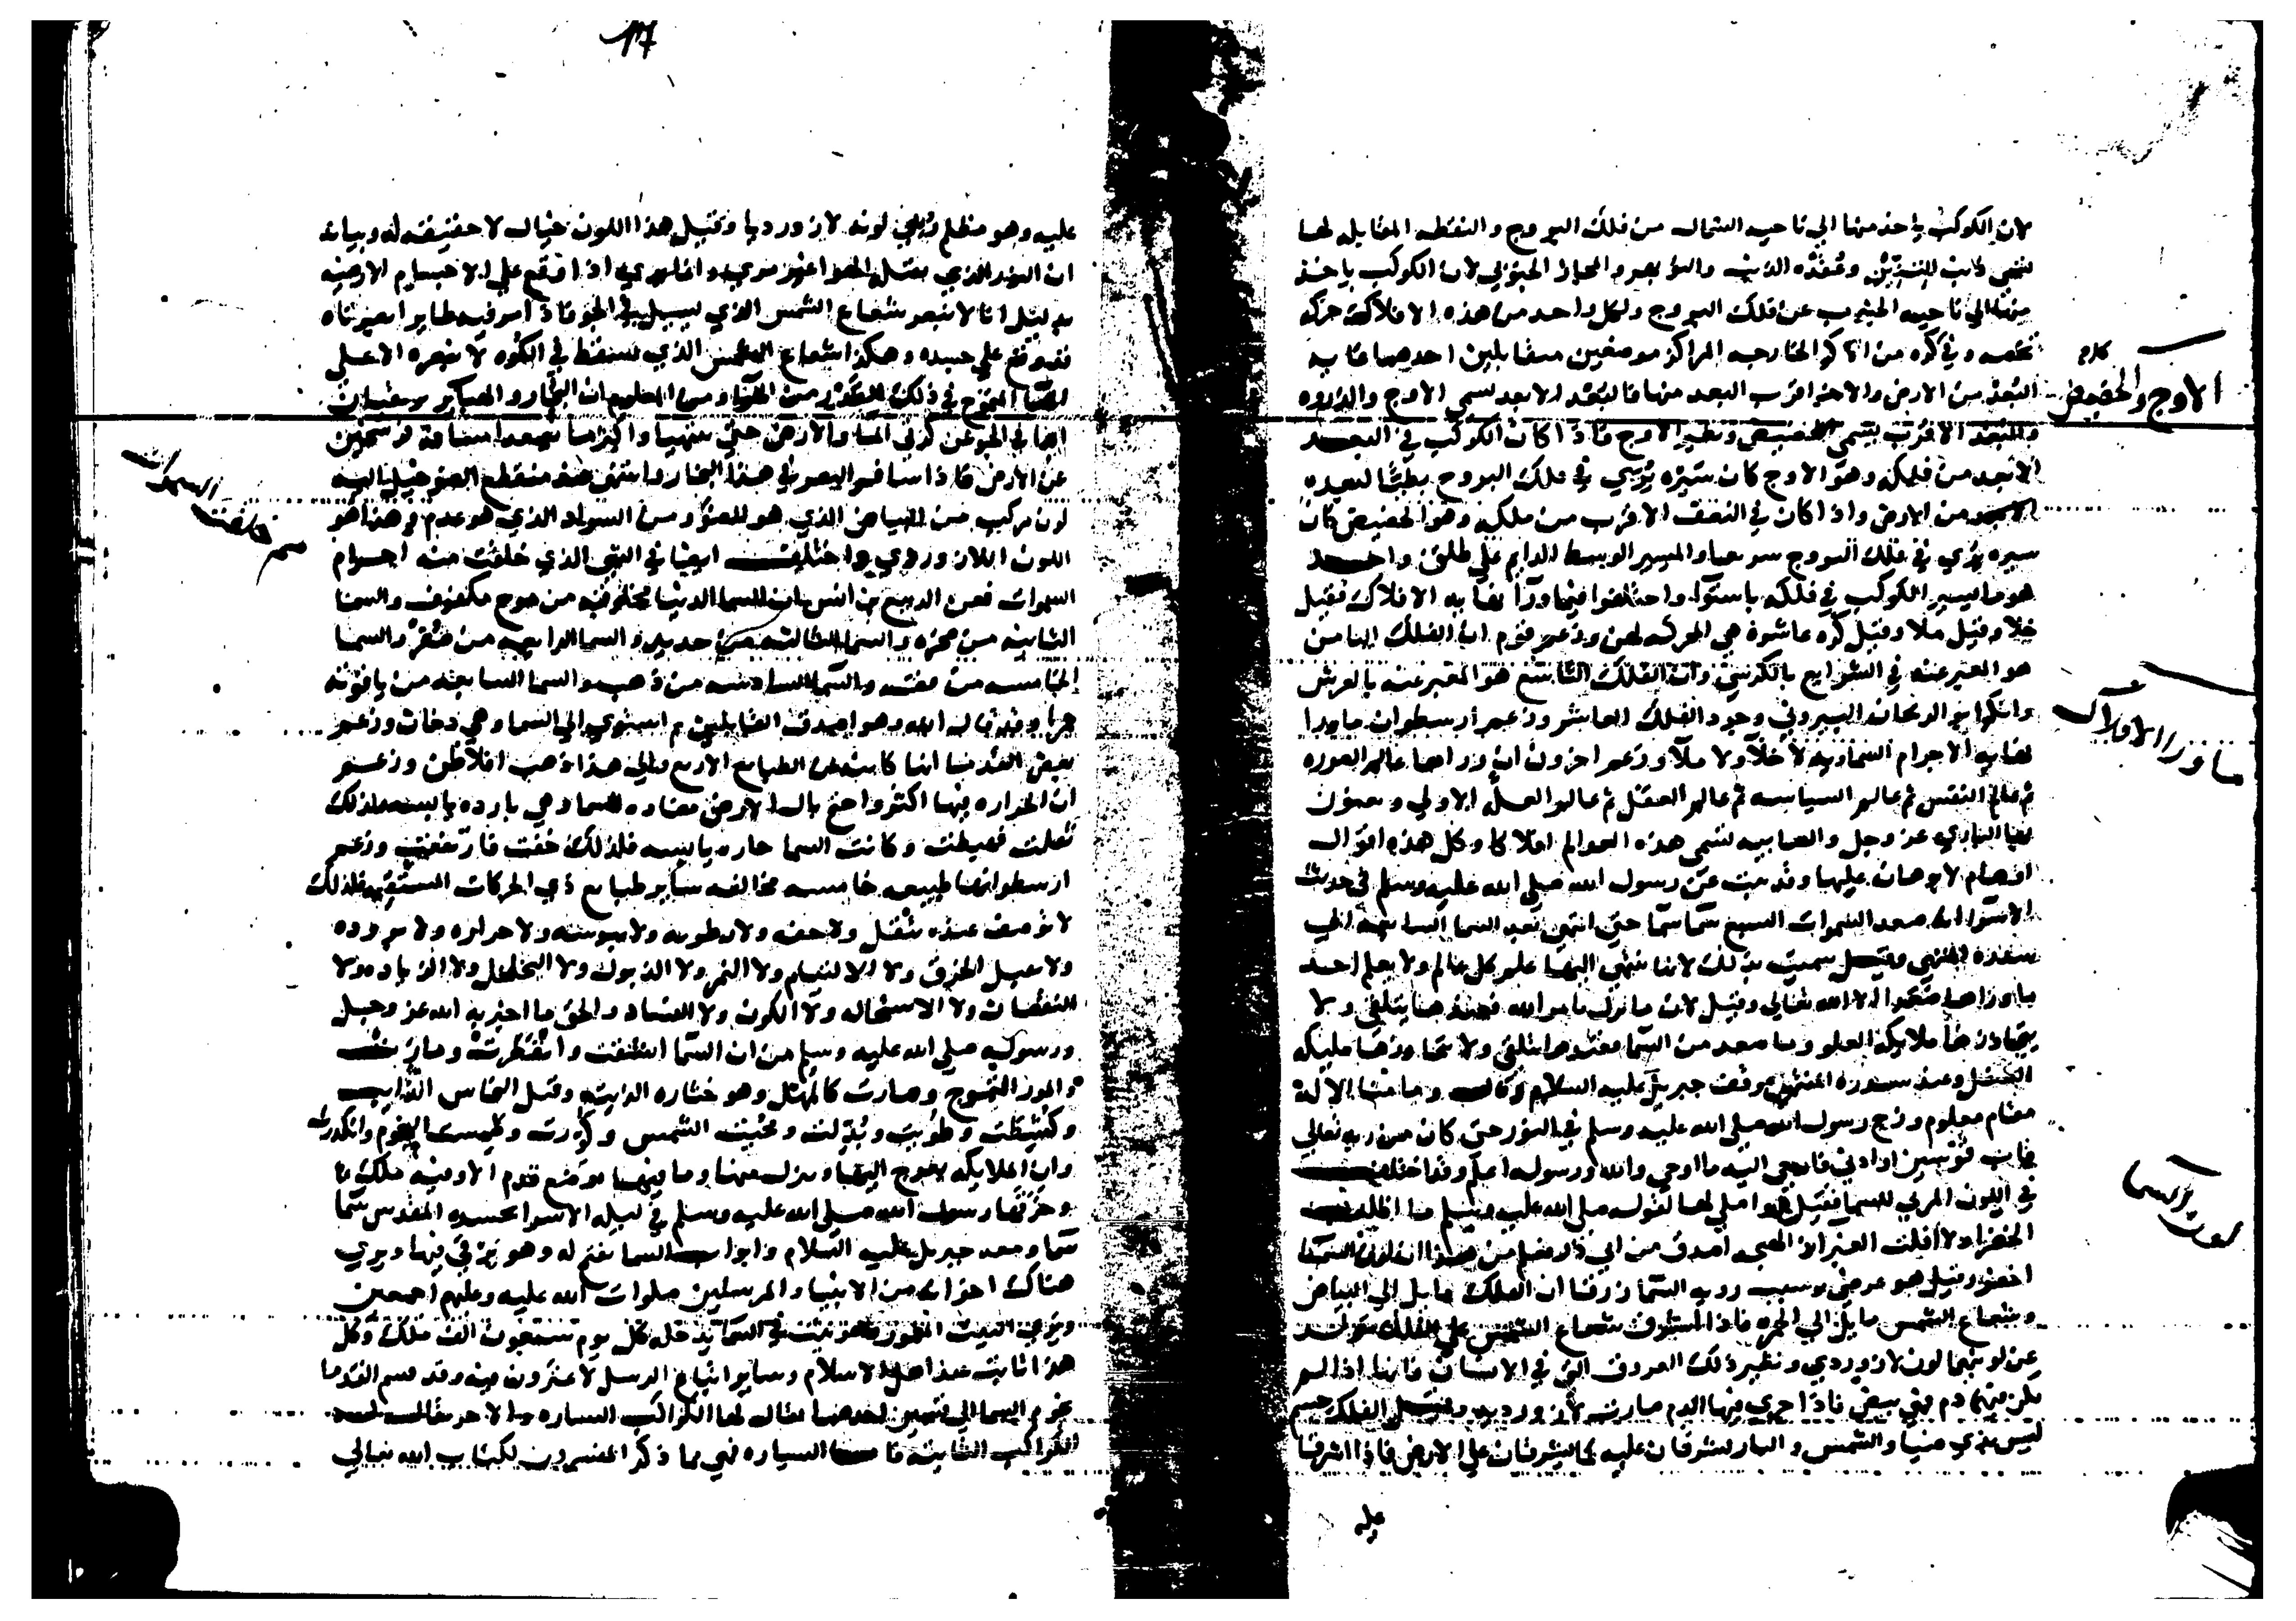 لان الكوكب ياخذ منها الي ناحيه الشمال من فلك البروج والنقطه المقابله لها
تسمي ذنب التنين وعقده الذنب والمجاز الجنوبي لان الكوكب ياخذ
منها الي ناحيه الجنوب عن فلك البروج ولكل واحد من هذه الافلاك حركه
تخصه وفي كره من الاكر الخارجه المراكز موضعين متقابلين احدهما غايه
البعد من الارض والاخر اقرب البعد منها فالبعد الابعد يسمي الاوج والذروه
والبعد الاقرب يسمي الحضيض ونظير الاوج فاذا كان الكوكب في البعد
الابعد من فلكه وهو الاوج كان سيره يري في فلك البروج بطيئا لبعده
من الارض واذا كان في النصف الاقرب من فلكه وهو الحضيض كان
سيره يري في فلك البروج سريعا والمسير الوسط الدايم علي طلق واحد
هو ما يسير الكوكب في فلكه باستوآ واختلفوا فيما ورآ نهايه الافلاك فقيل
خلا وقيل ملا وقيل كره عاشرة هي المحركه لهن وزعم قوم ان الفلك الثامن
هو المعبر عنه في الشرايع بالكرسي وان الفلك التاسع هو المعبر عنه بالعرش
وانكر ابو الريحان البيروني وجود الفلك العاشر وزعم ارسطو ان ما ورا
نهايه الاجرام السماويه لا خلآ ولا ملآ وزعم اخرون ان وراها عالم الصوره
ثم عالم النفس ثم عالم السياسه ثم عالم العقل ثم عالم العلة الاولي ويعنون
بها الباري عز وجل والصابيه تسمي هذه العوالم افلاكا وكل هذه اقوال
لا برهان عليها وقد ثبت عن رسول الله صلي الله عليه وسلم في حديث
الاسرا انه صعد السموات السبع سما سما حتي انتهي بعد السما السابعه الي
سدره المنتهي وقيل سميت بذلك لانها ينتهي اليها علم كل عالم ولا يعلم احد
ما وراها صعدا الا الله تعالي وقيل لان ما نزل بامر الله فعندها يتلقي ولا
يتجاوزها ملايكه العلو وما صعد من السما فعندها يتلقي ولا يتجاوزها مليكه
السفل وعند سدره المنتهي وقف جبريل عليه السلام وقال وما منا الا له
مقام معلوم وزج رسول الله صلي الله عليه وسلم في النور حتي كان من ربه تعالي
قاب قوسين او ادني فاوحي اليه ما اوحي والله ورسوله اعلم وقد اختلف
في اللون المري للسما فقيل هو اصلي لها لقوله صلي الله عليه وسلم ما اظلت
الخضرا ولا اقلت الغبرا اصدق من ابي ذر لون السما
اخضر وقيل هو عرضي بسبب رويه السما زرقا ان الفلك مايل الي البياض
وشعاع الشمس مايل الي الحمره فاذا اشرق شعاع الشمس علي الفلك تولد
عن لونيهما لون لازوردي ونظير ذلك العروق التي في الانسان فانها اذا لم
يكن فيها دم فهي بيض فاذا جري فيها الدم صارت لازورديه وقيل الفلك جسم
ليس بذي ضيا والشمس والنار يشرقان عليه كما يشرقان علي الارض فاذا اشرقا
عليه
كلام
الاوج والحضيض
ما ورا الافلاك
لون السما
١٧
عليه وهو مظلم لونه لازورديا وقيل هذا اللون خيال لا حقيقه له وبيانه
ان النور الذي يقبل الهوا غير مري وانما يري اذا وقع علي الاجسام الارضيه
بدليل انا لا نبصر شعاع الشمس الذي في الجو فاذا مر فيه طاير ابصرناه
قد وقع علي جسده وهكذا شعاع الشمس الذي يسقط في الكوه لا نبصره الا علي
في ذلك من ومن المعلوم ان البخار والهبا يرتفعان
ابدا في الجو عن كرتي الما والارض حتي ينتهيا
عن الارض فاذا سافر البصر في هذا البخار وانتهي منقطع الضو خيل اليه
لون مركب من البياض الذي هو للضو ومن السواد الذي هو عدم وهذا هو
اللون اللازوردي واختلف ايضا في الشي الذي خلقت منه اجرام
السموات فعن الربيع بن انس ان السما الدنيا مخلوقه من موج مكفوف والسما
الثانيه من صخره والسما الثالثه من حديد والسما الرابعه من صفر والسما
الخامسه من فضه والسما السادسه من ذهب والسما السابعه من ياقوته
حمرا وقد قال الله وهو اصدق القايلين ثم استوي الي السما وهي دخان وزعم
بعض القدما انها كاينه عن الطبايع الاربع والي هذا ذهب افلاطن وزعم
ان الحراره فيها اكثر واحتج بان الارض مضاده للسما وهي بارده يابسه فلذلك
ثقلت فهبطت وكانت السما حاره يابسه فلذلك خفت فارتفعت وزعم
ارسطو انها طبيعه خامسه مخالفه ساير طبايع ذي الحركات المستقيمه فلذلك
لا توصف عنده بثقل ولا خفه ولا رطوبه ولا يبوسه ولا حراره ولا بروده
ولا تقبل الخرق ولا الالتيام ولا النمو ولا الذبول ولا التخلخل ولا الزياده ولا
النقصان ولا الاستحاله ولا الكون ولا الفساد والحق ما اخبر به الله عز وجل
ورسوله صلي الله عليه وسلم من ان السما انشقت وانفطرت ومارت
والمور التموج وصارت كالمهل وهو خثاره الزيت وقيل النحاس الذايب
وكشطت وطويت وبدلت ومحيت الشمس وكورت وطمست النجوم وانكدرت
وان الملايكه تعرج اليها وتنزل منها وما فيها موضع قدم الا وفيه ملك
وخرقها رسول الله صلي الله عليه وسلم في ليله الاسرا بجسده المقدس سما
سما ومعه جبريل عليه السلام وابواب السما تفتح له وهو يرقي فيها ويري
هناك اخوانه من الانبيا والمرسلين صلوات الله عليه وعليهم اجمعين
ويري البيت المعمور وهو بيت في السما يدخله كل يوم سبعون الف ملك وكل
هذا ثابت عند اهل الاسلام وساير اتباع الرسل لا يمترون فيه وقد قسم القدما
نجوم السما الي قسمين احدهما يقال لها الكواكب السياره والاخر يقال لها
الكواكب الثابته فاما السياره فهي مما ذكر المفسرون لكتاب الله تعالي
مم خلقت السموات